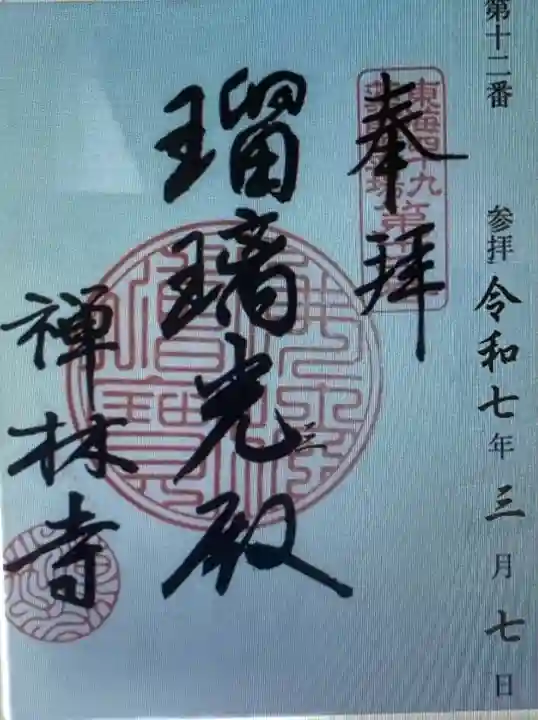 第十二番 参拝 令和七年三月七日
奉拝
瑠璃光殿
三
禅林寺